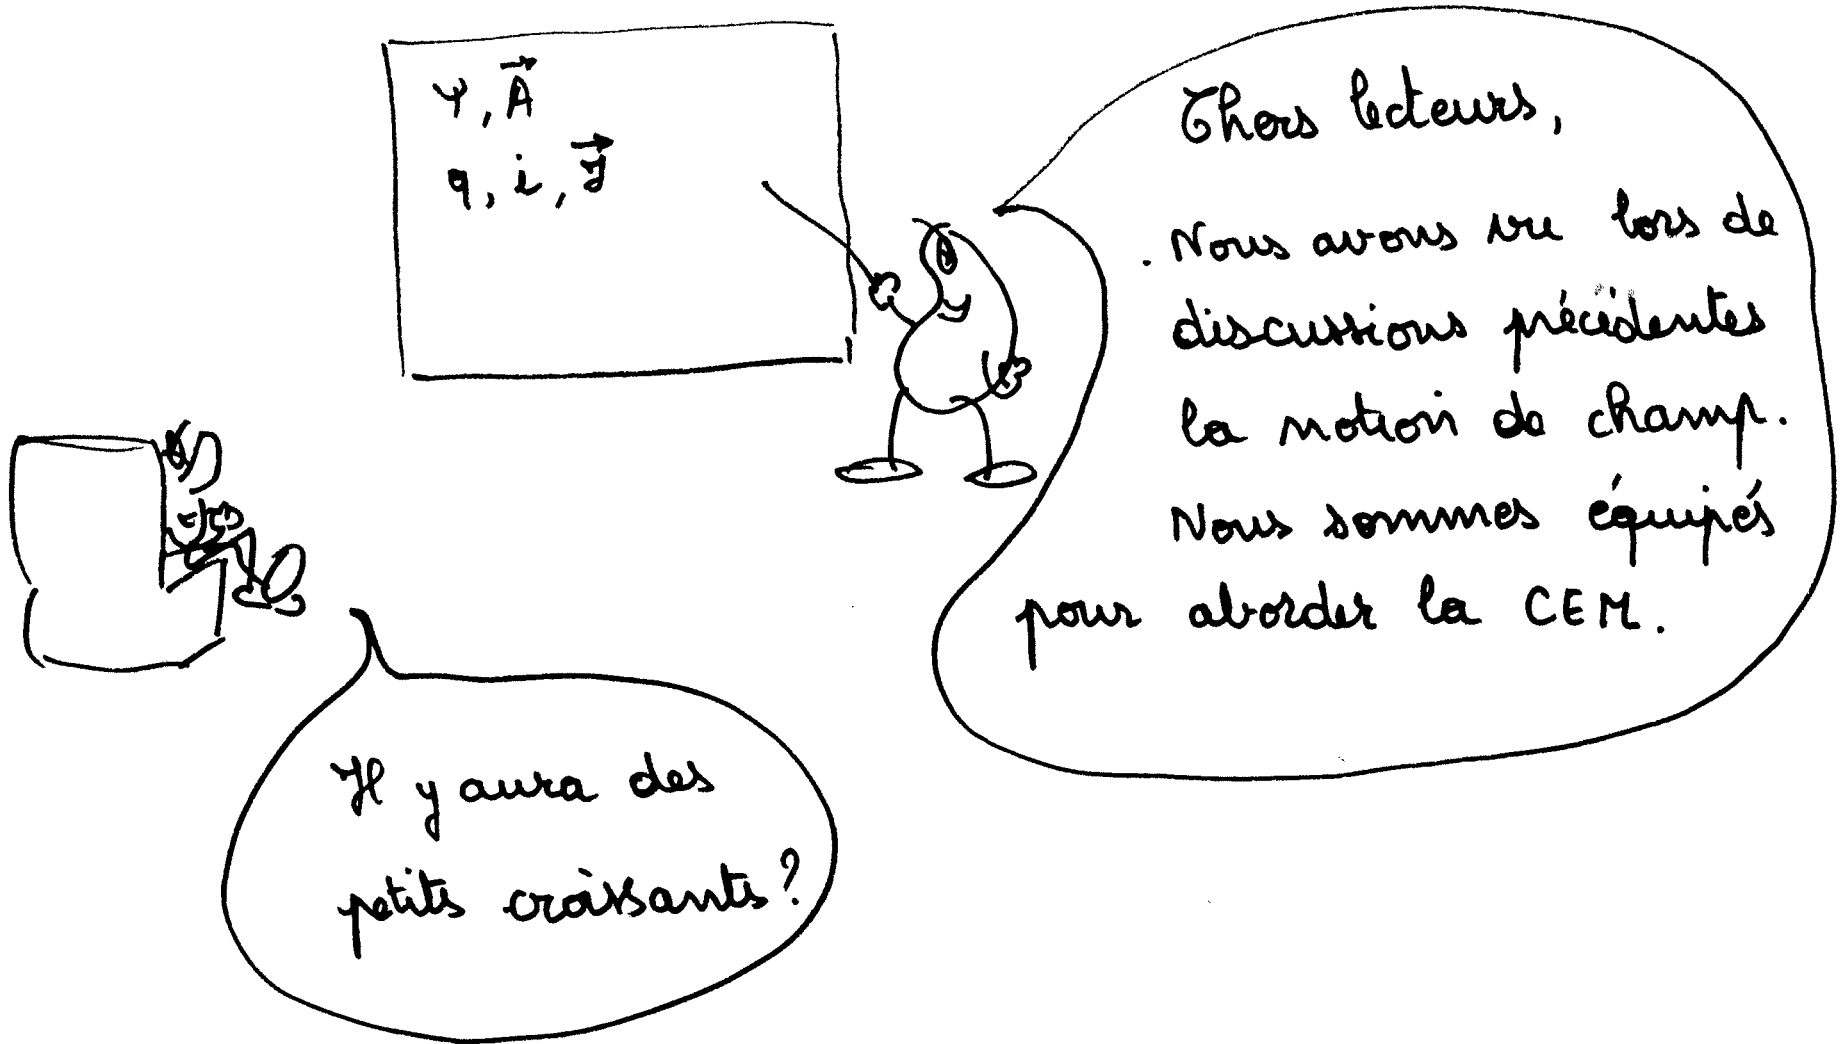 Ψ, A⃗
q, i, J⃗
Chers lecteurs,
Nous avons vu lors de
discussions précédentes
la notion de champ.
Nous sommes équipés
pour aborder la CEM.
Il y aura des
petits croissants ?